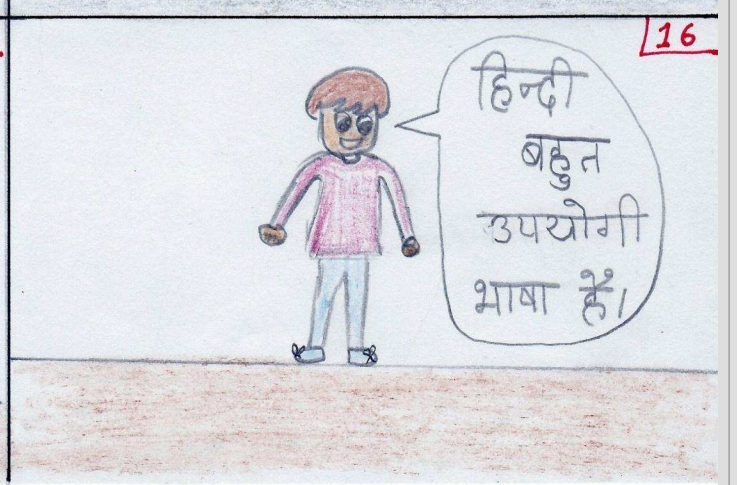 16
हिन्दी
बहुत
उपयोगी
भाषा है।